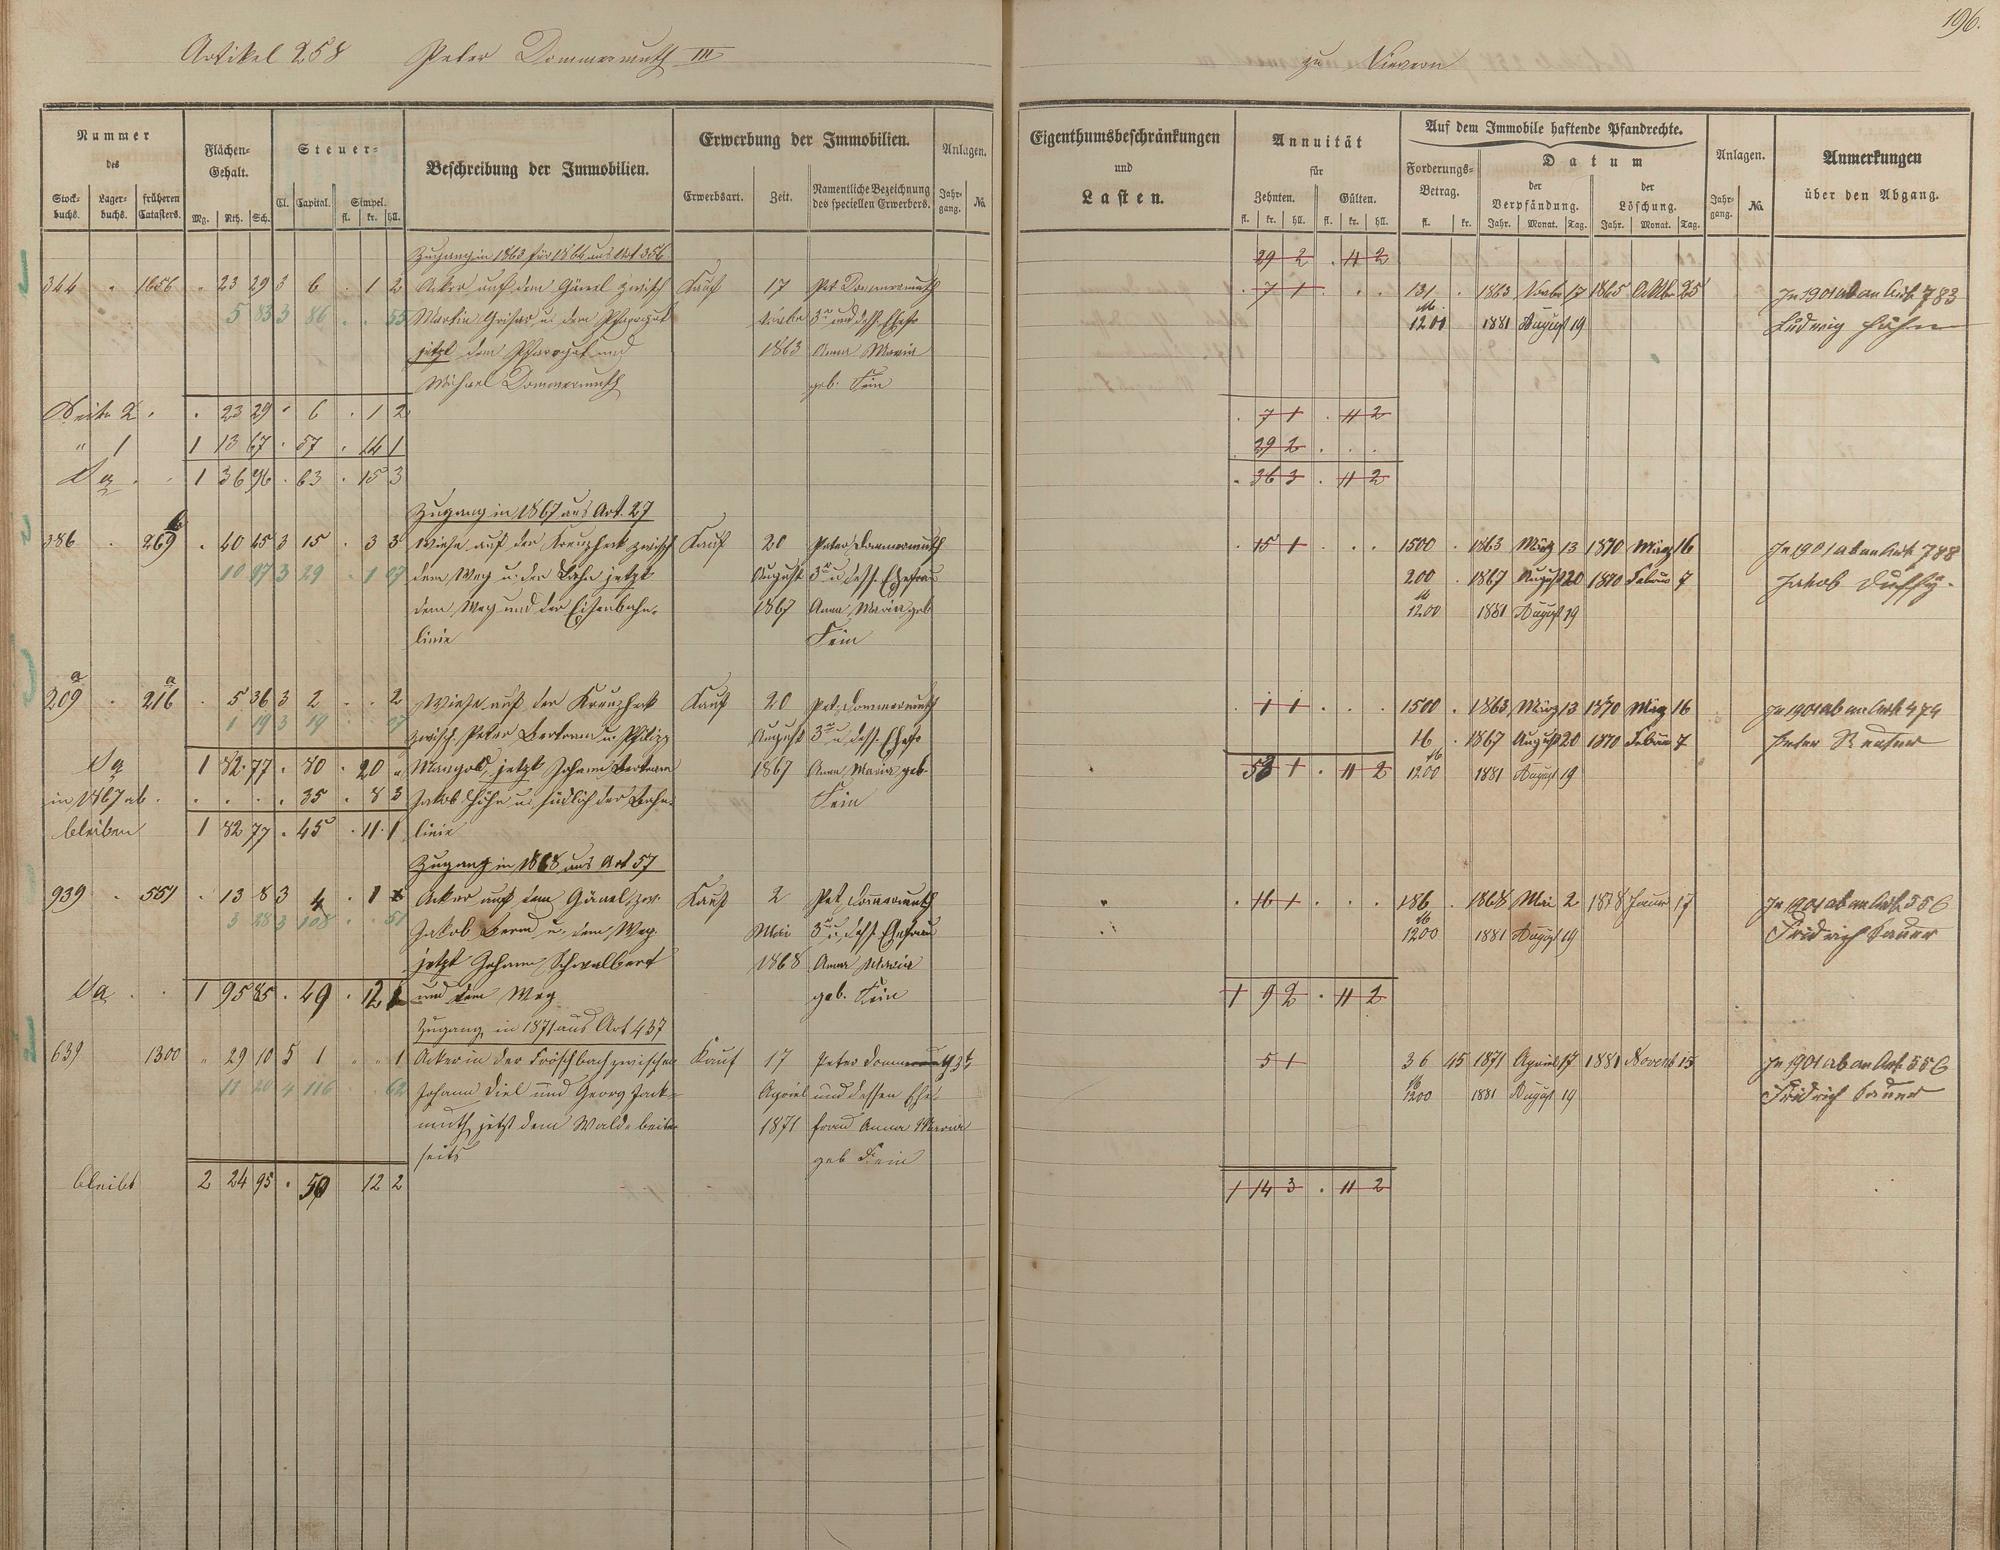 196.
Artikel 258 Peter Dommermuth III zu Nievern
Nummer
des
Stock-
buchs.
Lager-
buchs.
früheren
Catasters.
Flächen-
Gehalt.
Mg. Rth. Sch.
Steuer-
Cl. Capital. Simpel.
fl. kr. hll.
Beschreibung der Immobilien.
Erwerbung der Immobilien.
Erwerbsart. Zeit. Namentliche Bezeichnung
des speciellen Erwerbers.
Anlagen.
Jahr-
gang. No.
Eigenthumsbeschränkungen
und
Lasten.
Annuität
für
Zehnten. Gülten.
fl. kr. hll. fl. kr. hll.
Auf dem Immobile haftende Pfandrechte.
Forderungs-
Betrag.
fl. kr.
Datum
der
Verpfändung.
Jahr. Monat. Tag.
der
Löschung.
Jahr. Monat. Tag.
Anlagen.
Jahr-
gang. No.
Anmerkungen
über den Abgang.
Zugang in 1863 für 1864 aus Art 356
29 2 . 11 2
344 " 1656 . 23 29 3 6 . 1 2 Acker auf dem Gänel zwisch Kauf 17 Pet Dommermuth . 7 1 . . . 131 . 1863 Novbr 17 1865 Octbr 25 In 1901 ab an Art. 783
5 83 3 86 . . 55 Martin u. dem Pfarrgut Novbr 3r und dess. Ehefr 1200 1881 August 19 Ludwig Höhn
jetzt dem Pfarrgut und 1863 Anna Maria
Michael Dommermuth geb. Fein
Seite 2 . . 23 29 . 6 . 1 2 . 7 1 . 11 2
" 1 1 13 67 . 57 . 14 1 . 29 2 . . .
Sa . . 1 36 96 . 63 . 15 3 . 36 3 . 11 2
Zugang in 1867 aus Art. 27
386 . 269 . 40 45 3 15 . 3 3 Wiese auf der Kreuzheck zwisch Kauf 20 Peter Dommermuth . 15 1 . . . 1500 . 1863 März 13 1870 März 16 In 1901 ab an Art. 788
10 97 3 29 . 1 07 dem Weg u. der Bahn jetzt August 3r u. dess. Ehefrau 200 . 1867 August 20 1870 Febru 7 Jakob
dem Weg und der Eisenbahn- 1867 Anna Maria geb 1200 1881 August 19
linie Fein
209a . 216a . 5 36 3 2 . . 2 Wiese auf der Kreuzheck Kauf 20 Pet. Dommermuth . 1 1 . . . 1500 . 1863 März 13 1870 März 16 In 1901 ab an Art. 474
1 19 3 19 07 zwisch. Peter Bertram u. Philipp August 3r u dess. Ehefr 16 . 1867 August 20 1870 Febru 7 Peter Reuter
Sa 1 82 77 . 80 . 20 " Mangold, jetzt Johann Bertram 1867 Anna Maria geb. 53 1 . 11 2 1200 1881 August 19
in 1867 ab . . . . . 35 . 8 3 Jakob Höhn u. südlich der Bahn- Fein
bleiben 1 82 77 . 45 . 11 1 linie
Zugang in 1868 aus Art 57
939 . 551 . 13 8 3 4 . 1 Acker auf dem Gänel, zw. Kauf 2 Pet. Dommermuth . 16 1 . . . 186 . 1868 Mai 2 1878 Januar 17 In 1901 ab an Art. 556
3 28 3 108 . . 51 Jakob u. dem Weg. Mai 3r u. dess. Ehefrau 1200 1881 August 19 Fridrich Sauer
jetzt Johann Schwalbert 1868 Anna Maria
Sa . . 1 95 85 . 49 . 12 1 und dem Weg geb. Fein 1 9 2 . 11 2
Zugang in 1871 aus Art 437
639 1300 " 29 10 5 1 " " 1 Acker in der Fröschbach zwischen Kauf 17 Peter Dommermuth 3t 5 1 36 45 1871 April 17 1881 Novemb 15 In 1901 ab an Art. 556
11 20 4 116 . . 62 Johann Diel und Georg Zack- April und dessen Ehe- 1200 1881 August 19 Fridrich Sauer
muth, jetzt dem Wald beider- 1871 frau Anna Maria
seits geb Fein
bleibt 2 24 95 . 50 12 2 1 14 3 . 11 2